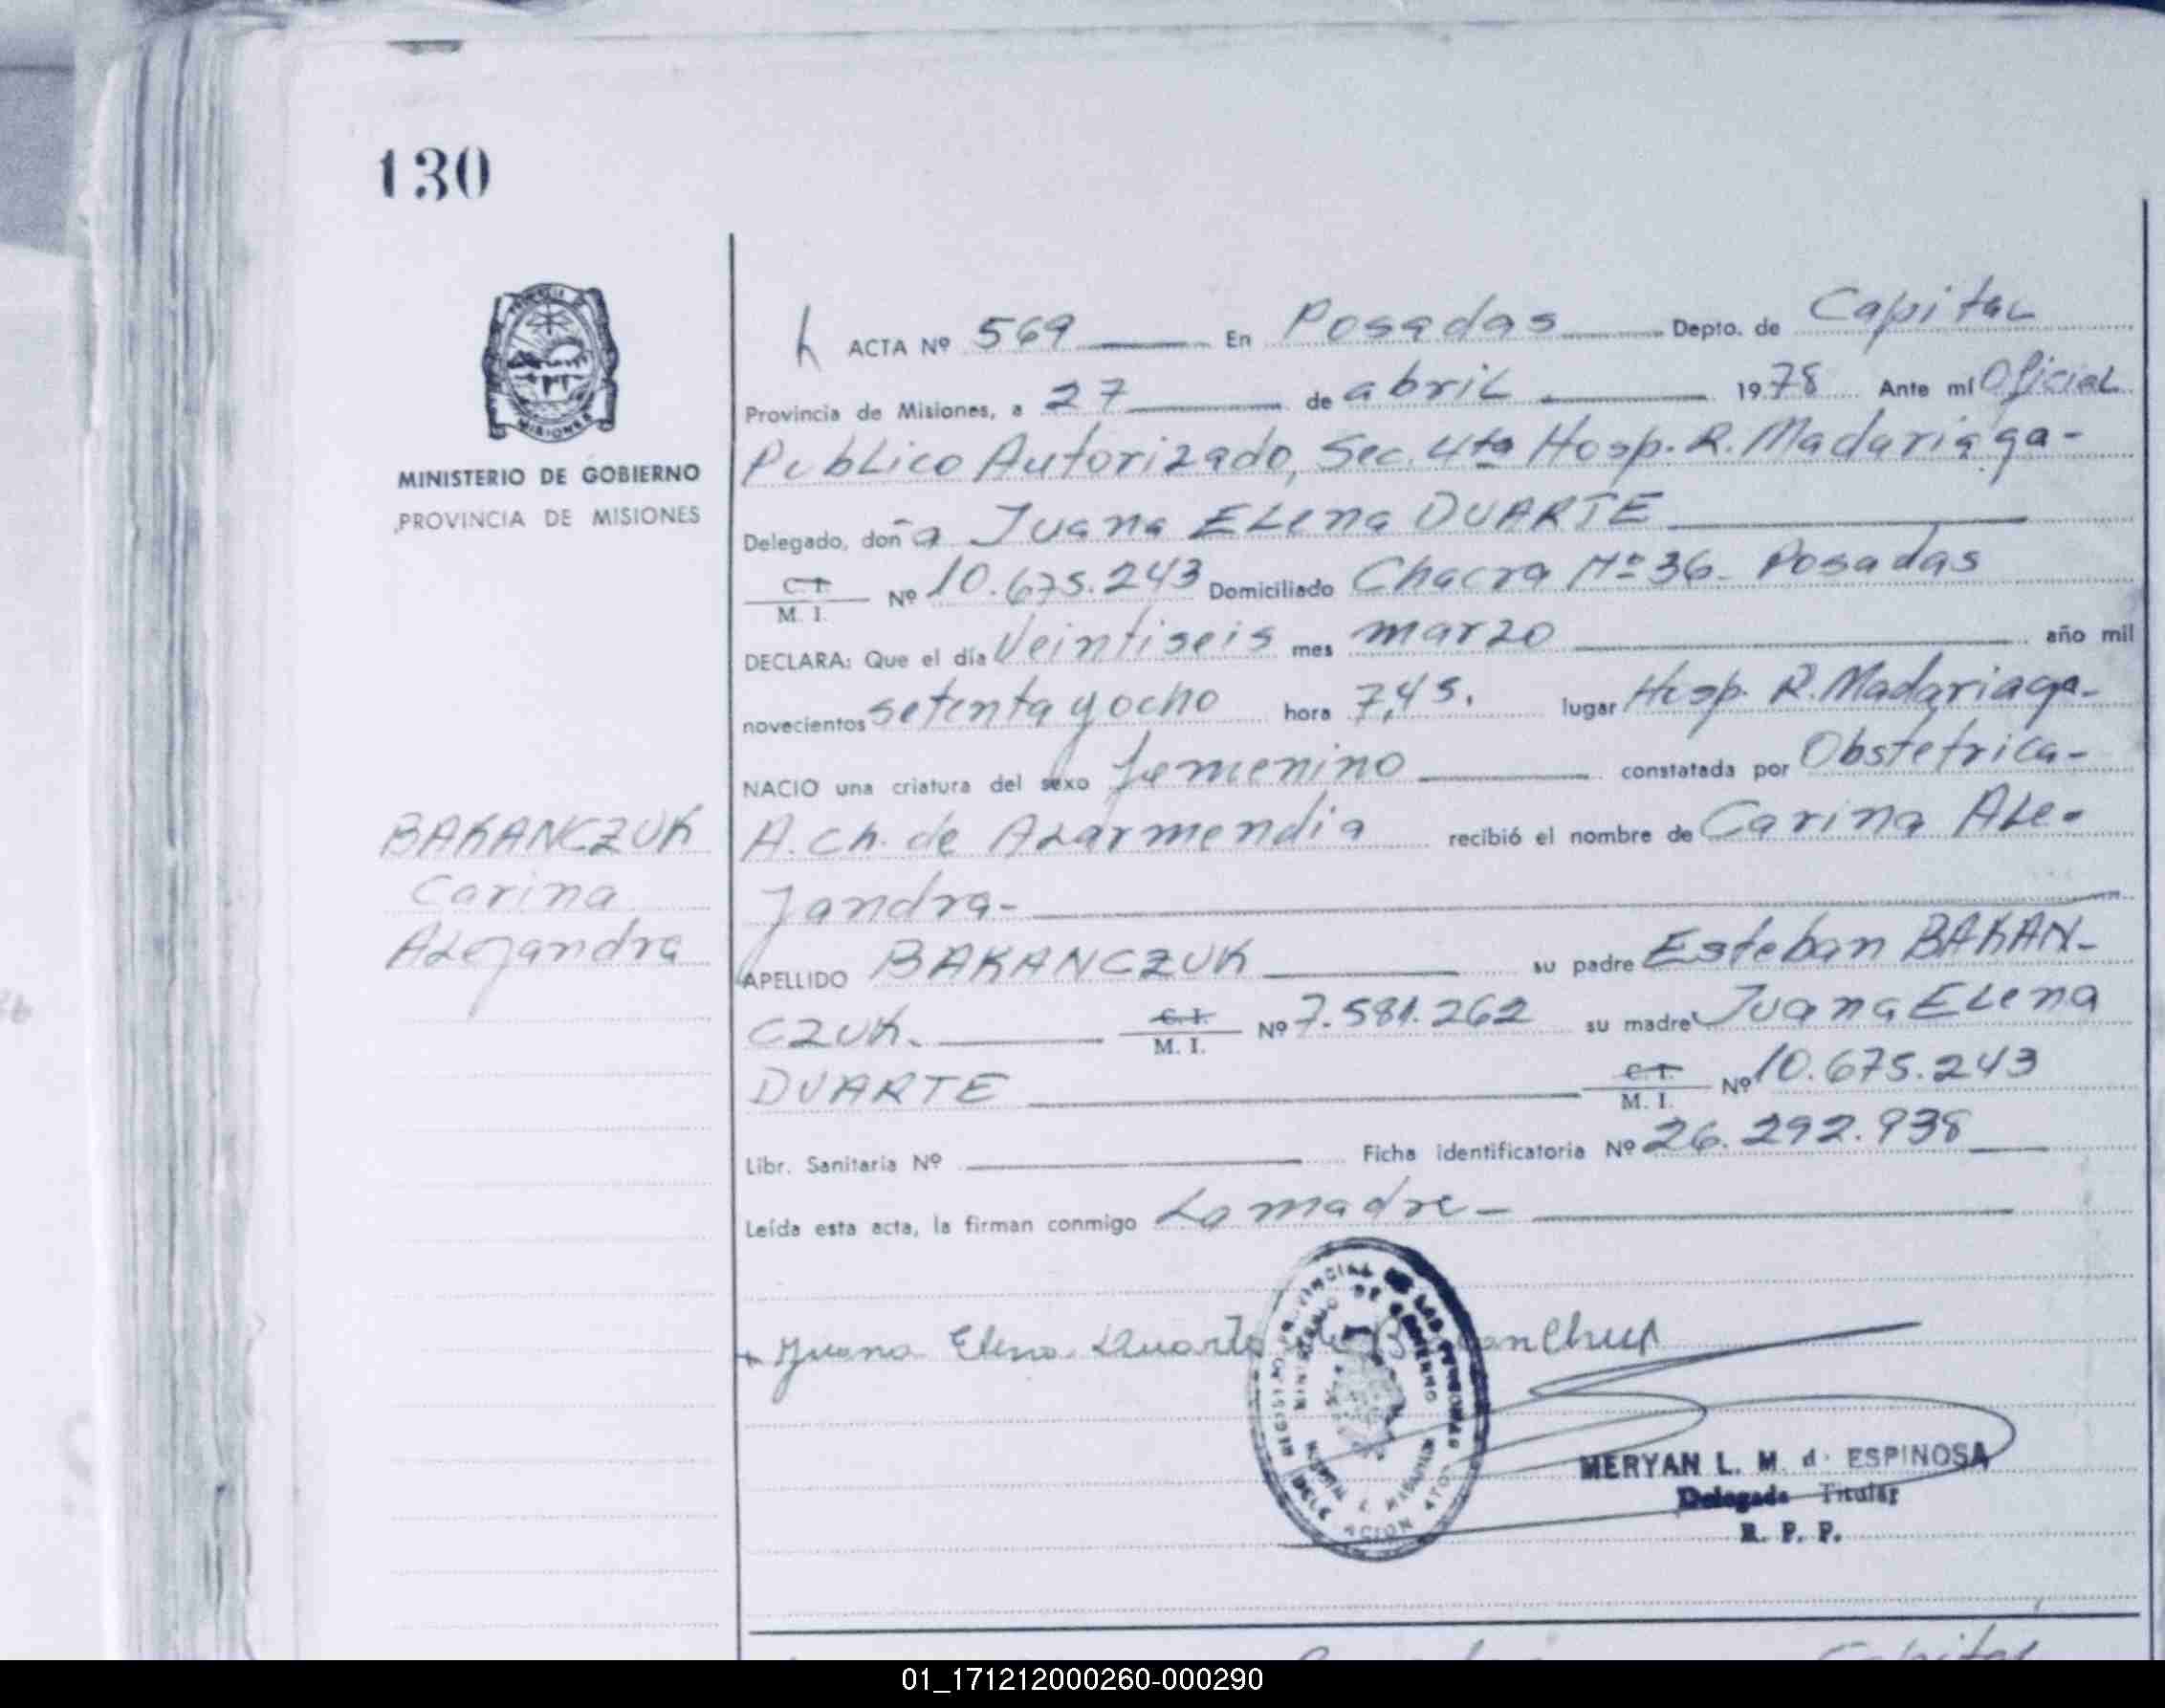 130
MINISTERIO DE GOBIERNO
PROVINCIA DE MISIONES
ACTA Nº 569 En Posadas Depto. de Capital
Provincia de Misiones, a 27 de abril 1978 Ante mí Oficial
Publico Autorizado, Sec. 4ta Hosp. R. Madariaga-
Delegado, doña Juana Elena DUARTE
C. I.
M. I. Nº 10.675.243 Domiciliado Chacra Nº 36- Posadas
DECLARA: Que el día Veintiseis mes marzo año mil
novecientos setenta y ocho hora 7,45. lugar Hosp. R. Madariaga-
NACIO una criatura del sexo femenino constatada por Obstetrica-
A. Ch. de Azarmendia recibió el nombre de Carina Ale-
jandra-
BAKANCZUK
Carina
Alejandra
APELLIDO BAKANCZUK su padre Esteban BAKAN-
CZUK. C. I.
M. I. Nº 7.581.262 su madre Juana Elena
DUARTE C. I.
M. I. Nº 10.675.243
Libr. Sanitaria Nº Ficha identificatoria Nº 26.292.938
Leída esta acta, la firman conmigo La madre-
Juana Elena Duarte de
MERYAN L. M. d. ESPINOSA
Delegada Titular
R. P. P.
Capital
01_171212000260-000290